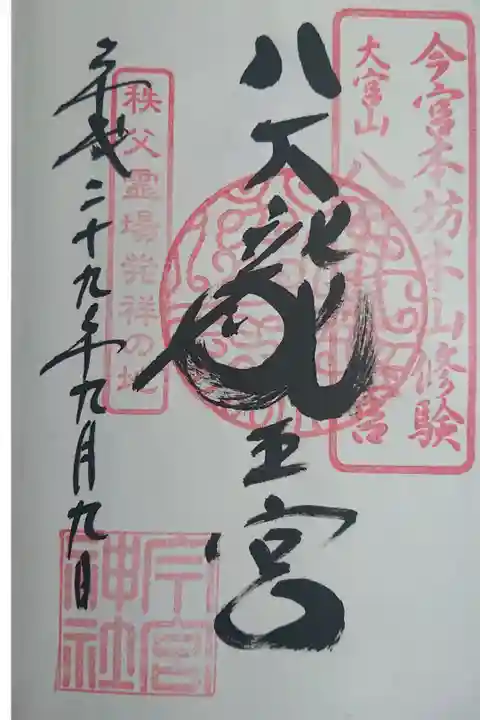 今宮本坊本山修験
大宮山 八大龍王宮
八大龍王宮
秩父霊場発祥の地
平成二十九年九月九日
今宮神社